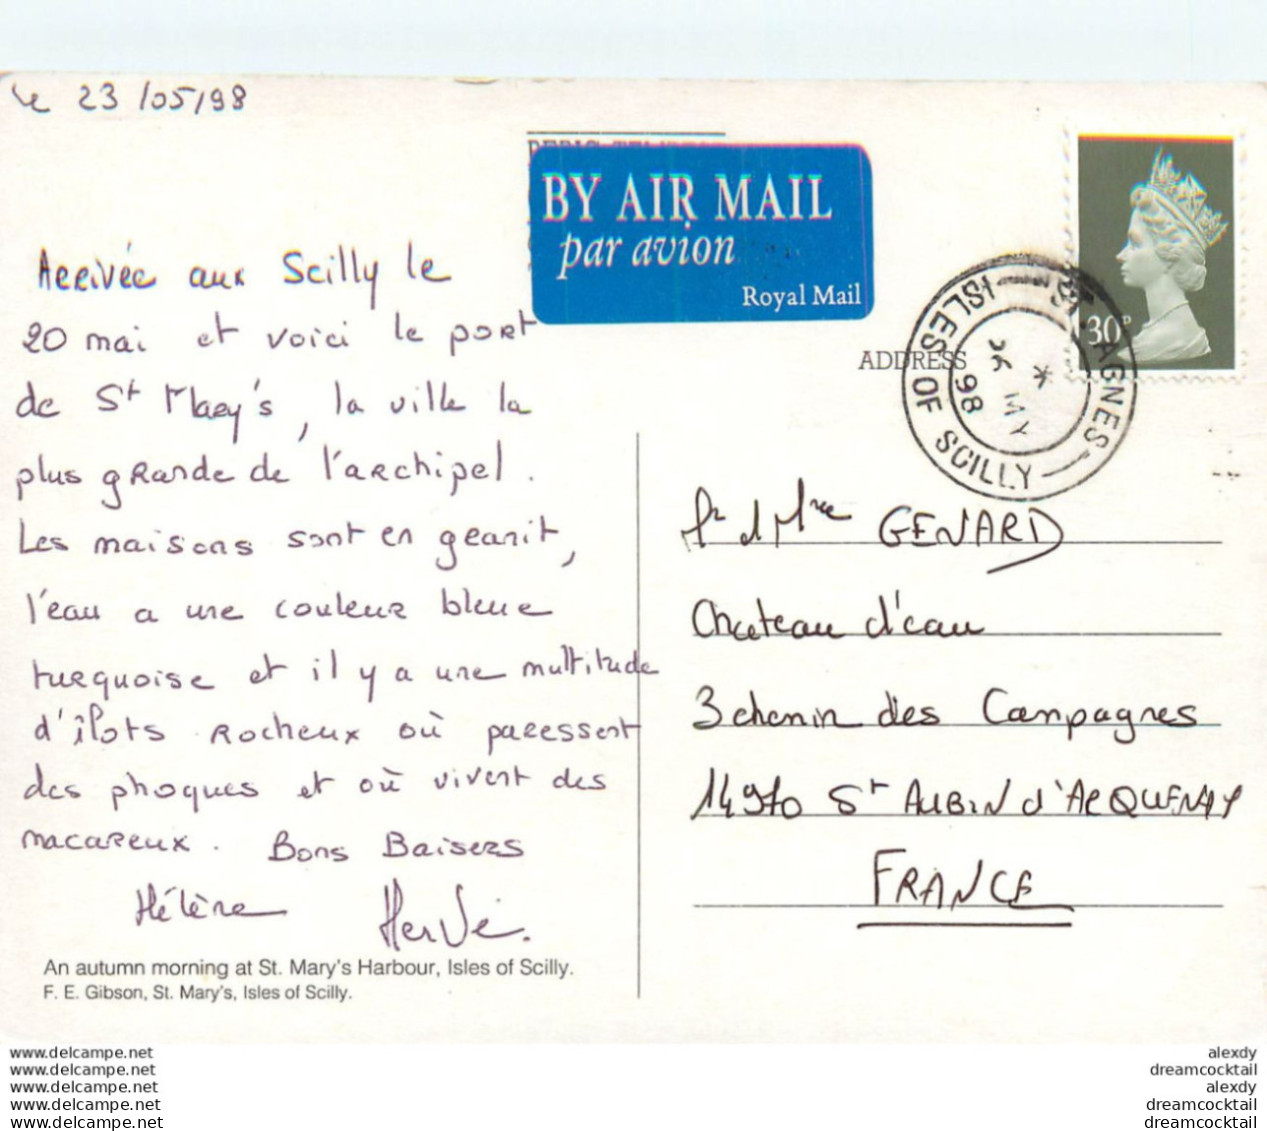 le 23/05/98
BY AIR MAIL
par avion
Royal Mail
30P
ST. AGNES
ISLES OF SCILLY
MY
98
ADDRESS
Arrivée aux Scilly le
20 mai et voici le port
de St Mary's, la ville la
plus grande de l'archipel.
Les maisons sont en granit,
l'eau a une couleur bleue
turquoise et il y a une multitude
d'îlots rocheux où paressent
des phoques et où vivent des
macareux. Bons Baisers
Hélène Hervé.
An autumn morning at St. Mary's Harbour, Isles of Scilly.
F. E. Gibson, St. Mary's, Isles of Scilly.
Mr et Mme GENARD
Chateau d'eau
3 chemin des Campagnes
14970 St AUBIN d'ARQUENAY
FRANCE
www.delcampe.net
www.delcampe.net
www.delcampe.net
www.delcampe.net
www.delcampe.net
alexdy
dreamcocktail
alexdy
dreamcocktail
dreamcocktail